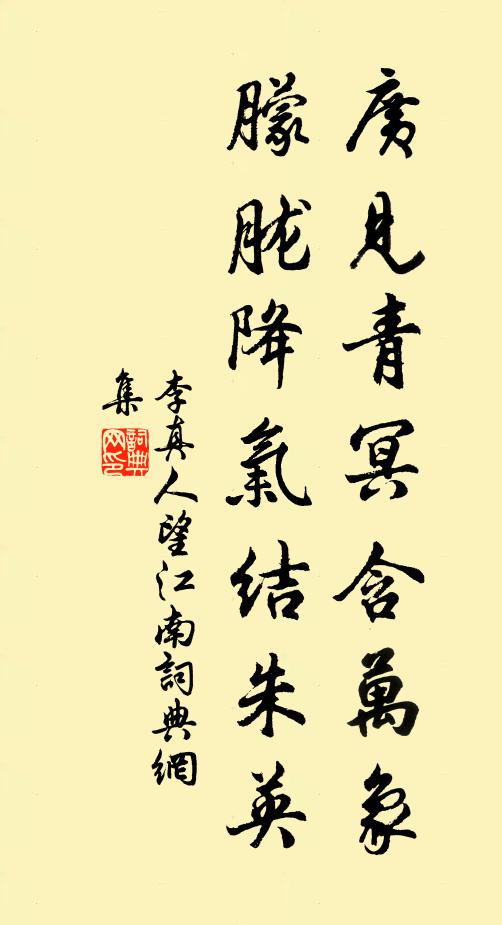 廣見青冥含萬象
朦朧降氣結朱英
李真人望江南詞典網
集
詞典
网印